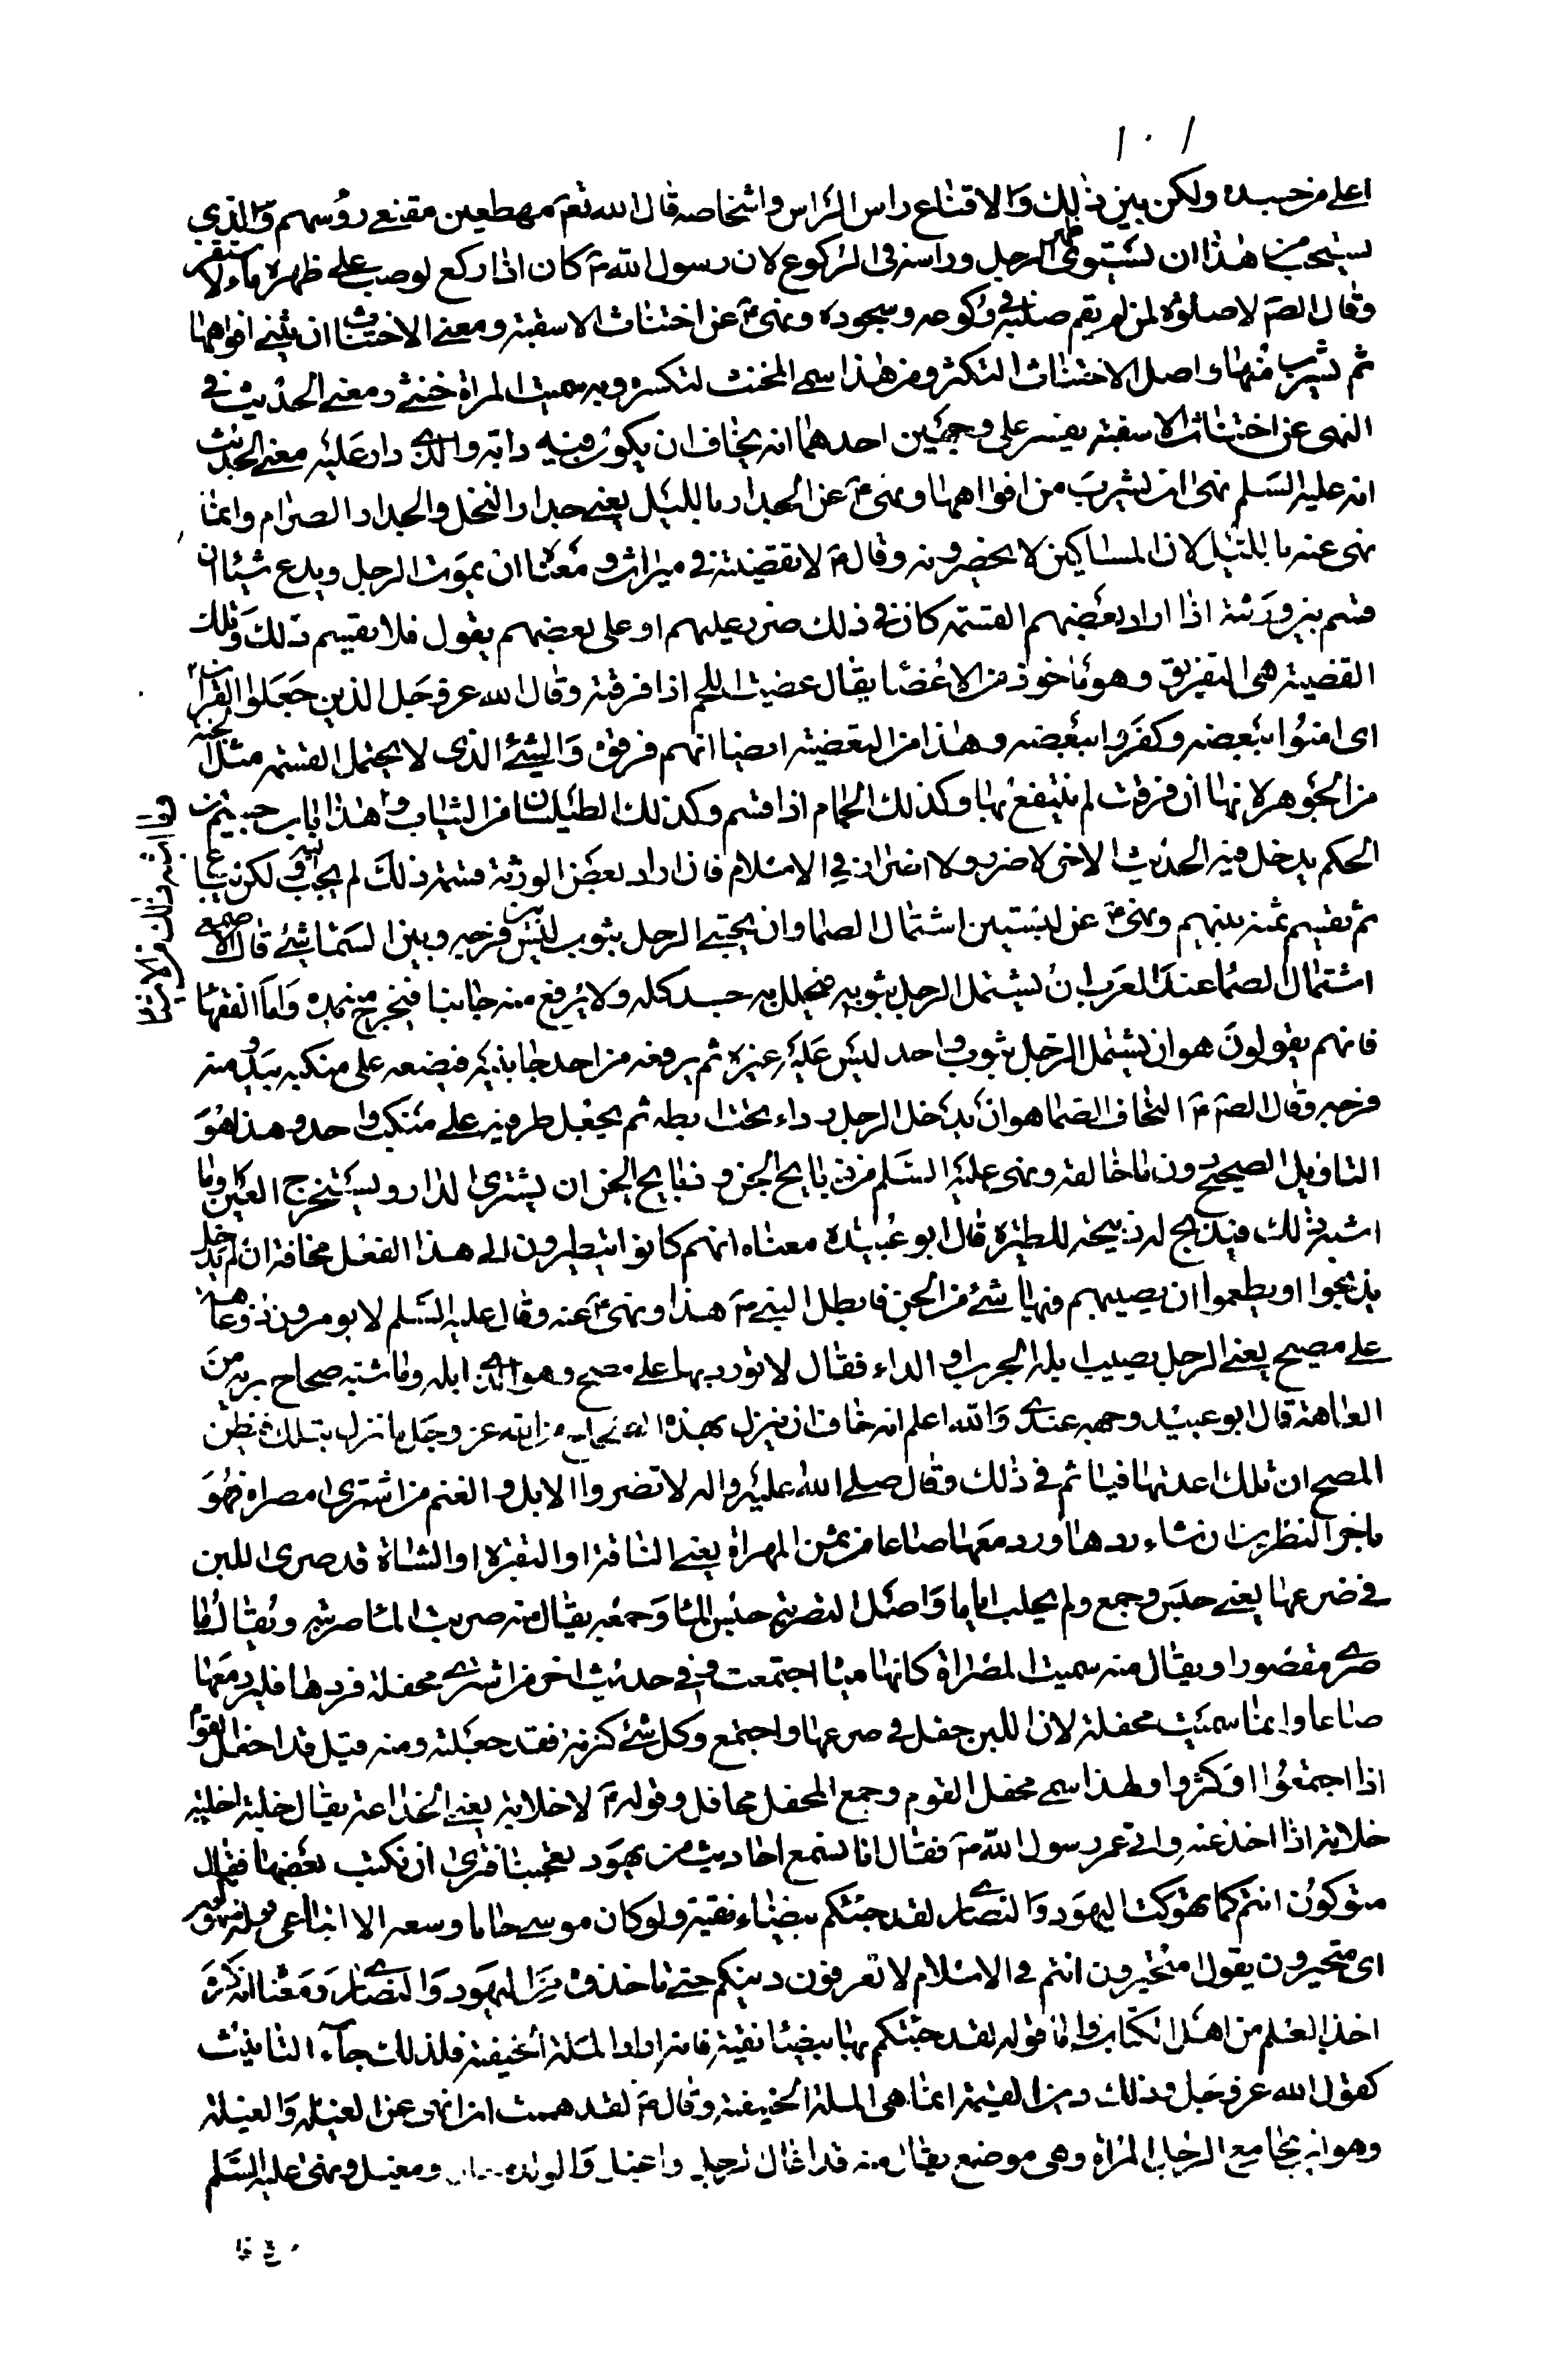 ١٠١
اعلى من جسده ولكن بين ذلك والاقناع راس الراس واشخاصه قال الله تعم مهطعين مقنعى رؤسهم والذي
يستحب من هذا ان يستوى ظهر الرجل وراسه فى الركوع لان رسول الله ص كان اذا ركع لو صب على ظهره ماء لاستقر
وقال الصم لا صلوة لمن لم يقم صلبه فى ركوعه وسجوده ونهى ص عن اختناث الاسقية ومعنى الاختناث ان يثنى افواهها
ثم يشرب منها واصل الاختناث التكسر ومن هذا سمى المخنث لتكسره وبه سميت المراة خنثى ومعنى الحديث فى
النهى عن اختناث الاسقية يفسر على وجهين احدهما انه يخاف ان يكون فيه دابة والذى دار عليه معنى الحديث
انه عليه السلم نهى ان يشرب من افواهها ونهى ص عن الجداد بالليل يعنى جداد النخل والجداد الصرام وانما
نهى عنه بالليل لان المساكين لا يحضرونه وقال ص لا تعضية فى ميراث ومعناه ان يموت الرجل ويدع شيئا ان
قسم بين ورثته اذا اراد بعضهم القسمة كان فى ذلك ضرر عليهم او على بعضهم يقول فلا يقسم ذلك وتلك
التعضية هى التفريق وهو ماخوذ من الاعضا يقال عضيت اللحم اذا فرقته وقال الله عز وجل الذين جعلوا القران عضين
اى امنوا ببعضه وكفروا ببعضه وهذا من التعضية ايضا انهم فرقوه والشئ الذى لا يحتمل القسمة مثل الحبة
من الجوهر لانها ان فرقت لم ينتفع بها وكذلك الحمام اذا قسم وكذلك الطيلسان من الثياب وما اشبه ذلك من الاشيا وهذا باب جسيم من
الحكم يدخل فيه الحديث الاخر لا ضرر ولا اضرار فى الاسلام فان اراد بعض الورثة قسمة ذلك لم يجب اليه ولكن يباع
ثم يقسم ثمنه بينهم ونهى ص عن لبستين اشتمال الصما وان يحتبى الرجل بثوب ليس بين فرجه وبين السما شئ قال الاصمعى
اشتمال الصما عند العرب ان يشتمل الرجل بثوبه فيجلل به جسده كله ولا يرفع منه جانبا فيخرج منه يده واما الفقها
فانهم يقولون هو ان يشتمل الرجل بثوب واحد ليس عليه غيره ثم يرفعه من احد جانبيه فيضعه على منكبيه يبدو منه
فرجه وقال الصم ص التحاف الصما هو ان يدخل الرجل رداءه تحت ابطه ثم يجعل طرفيه على منكب واحد وهذا هو
التاويل الصحيح دون ما خالفه ونهى عليه السلم من ذبايح الجن وذبايح الجن ان يشترى الدار ويستخرج العين وما
اشبه ذلك فيذبح له ذبيحة للطيرة قال ابو عبيدة معناه انهم كانوا يتطيرون الى هذا الفعل مخافة ان لم
يذبحوا او يطعموا ان يصيبهم فيها شئ من الجن فابطل النبى ص هذا ونهى ص عنه وقال عليه السلم لا يوردن ذو عاهة
على مصح يعنى الرجل يصيب ابله الجرب او الداء فقال لا يوردنها على مصح وهو الذى ابله وماشيته صحاح برية من
العاهة قال ابو عبيد وجهه عندى والله اعلم انه خاف ان ينزل بهذه من الله عز وجل ما نزل بتلك فيظن
المصح ان تلك اعدتها فياثم فى ذلك وقال صلى الله عليه واله لا تصروا الابل والغنم من اشترى مصراة فهو
باخر النظرين ان شاء ردها ورد معها صاعا من تمر المصراة يعنى الناقة او البقرة او الشاة قد صرى اللبن
فى ضرعها يعنى حبس وجمع ولم يحلب اياما واصل التصرية حبس الما وجمعه يقال منه صريت الما وصريته ويقال ما
صرى مقصورا ويقال منه سميت المصراة كانها مياه اجتمعت وفى حديث اخر من اشترى محفلة فردها فليرد معها
صاعا وانما سميت محفلة لان اللبن حفل فى ضرعها واجتمع وكل شئ كثرته فقد حفلته ومنه قيل قد احفل القوم
اذا اجتمعوا او كثروا ولهذا سمى محفل القوم وجمع المحفل محافل وقوله ص لا خلابة يعنى الخداعة يقال خلبته اخلبه
خلابة اذا خدعته واتى عمر رسول الله ص فقال انا نسمع احاديث من يهود تعجبنا فترى ان نكتب بعضها فقال
متهوكون انتم كما تهوكت اليهود والنصارى لقد جئتكم بيضاء نقية ولو كان موسى حيا ما وسعه الا اتباعى قوله متهوكون
اى متحيرون يقول متحيرون انتم فى الاسلام لا تعرفون دينكم حتى تاخذوه من اليهود والنصارى ومعناه انه كره
اخذ العلم من اهل الكتاب واما قوله لقد جئتكم بها بيضا نقية فانه اراد الملة الحنيفية فلذلك جاء التانيث
كقول الله عز وجل وذلك دين القيمة انما هى الملة الحنيفية وقال ص لقد هممت ان انهى عن الغيلة والغيلة
وهو ان يجامع الرجل المراة وهى مرضع يقال منه قد اغال الرجل واغيل والولد مغال ومغيل ونهى عليه السلم